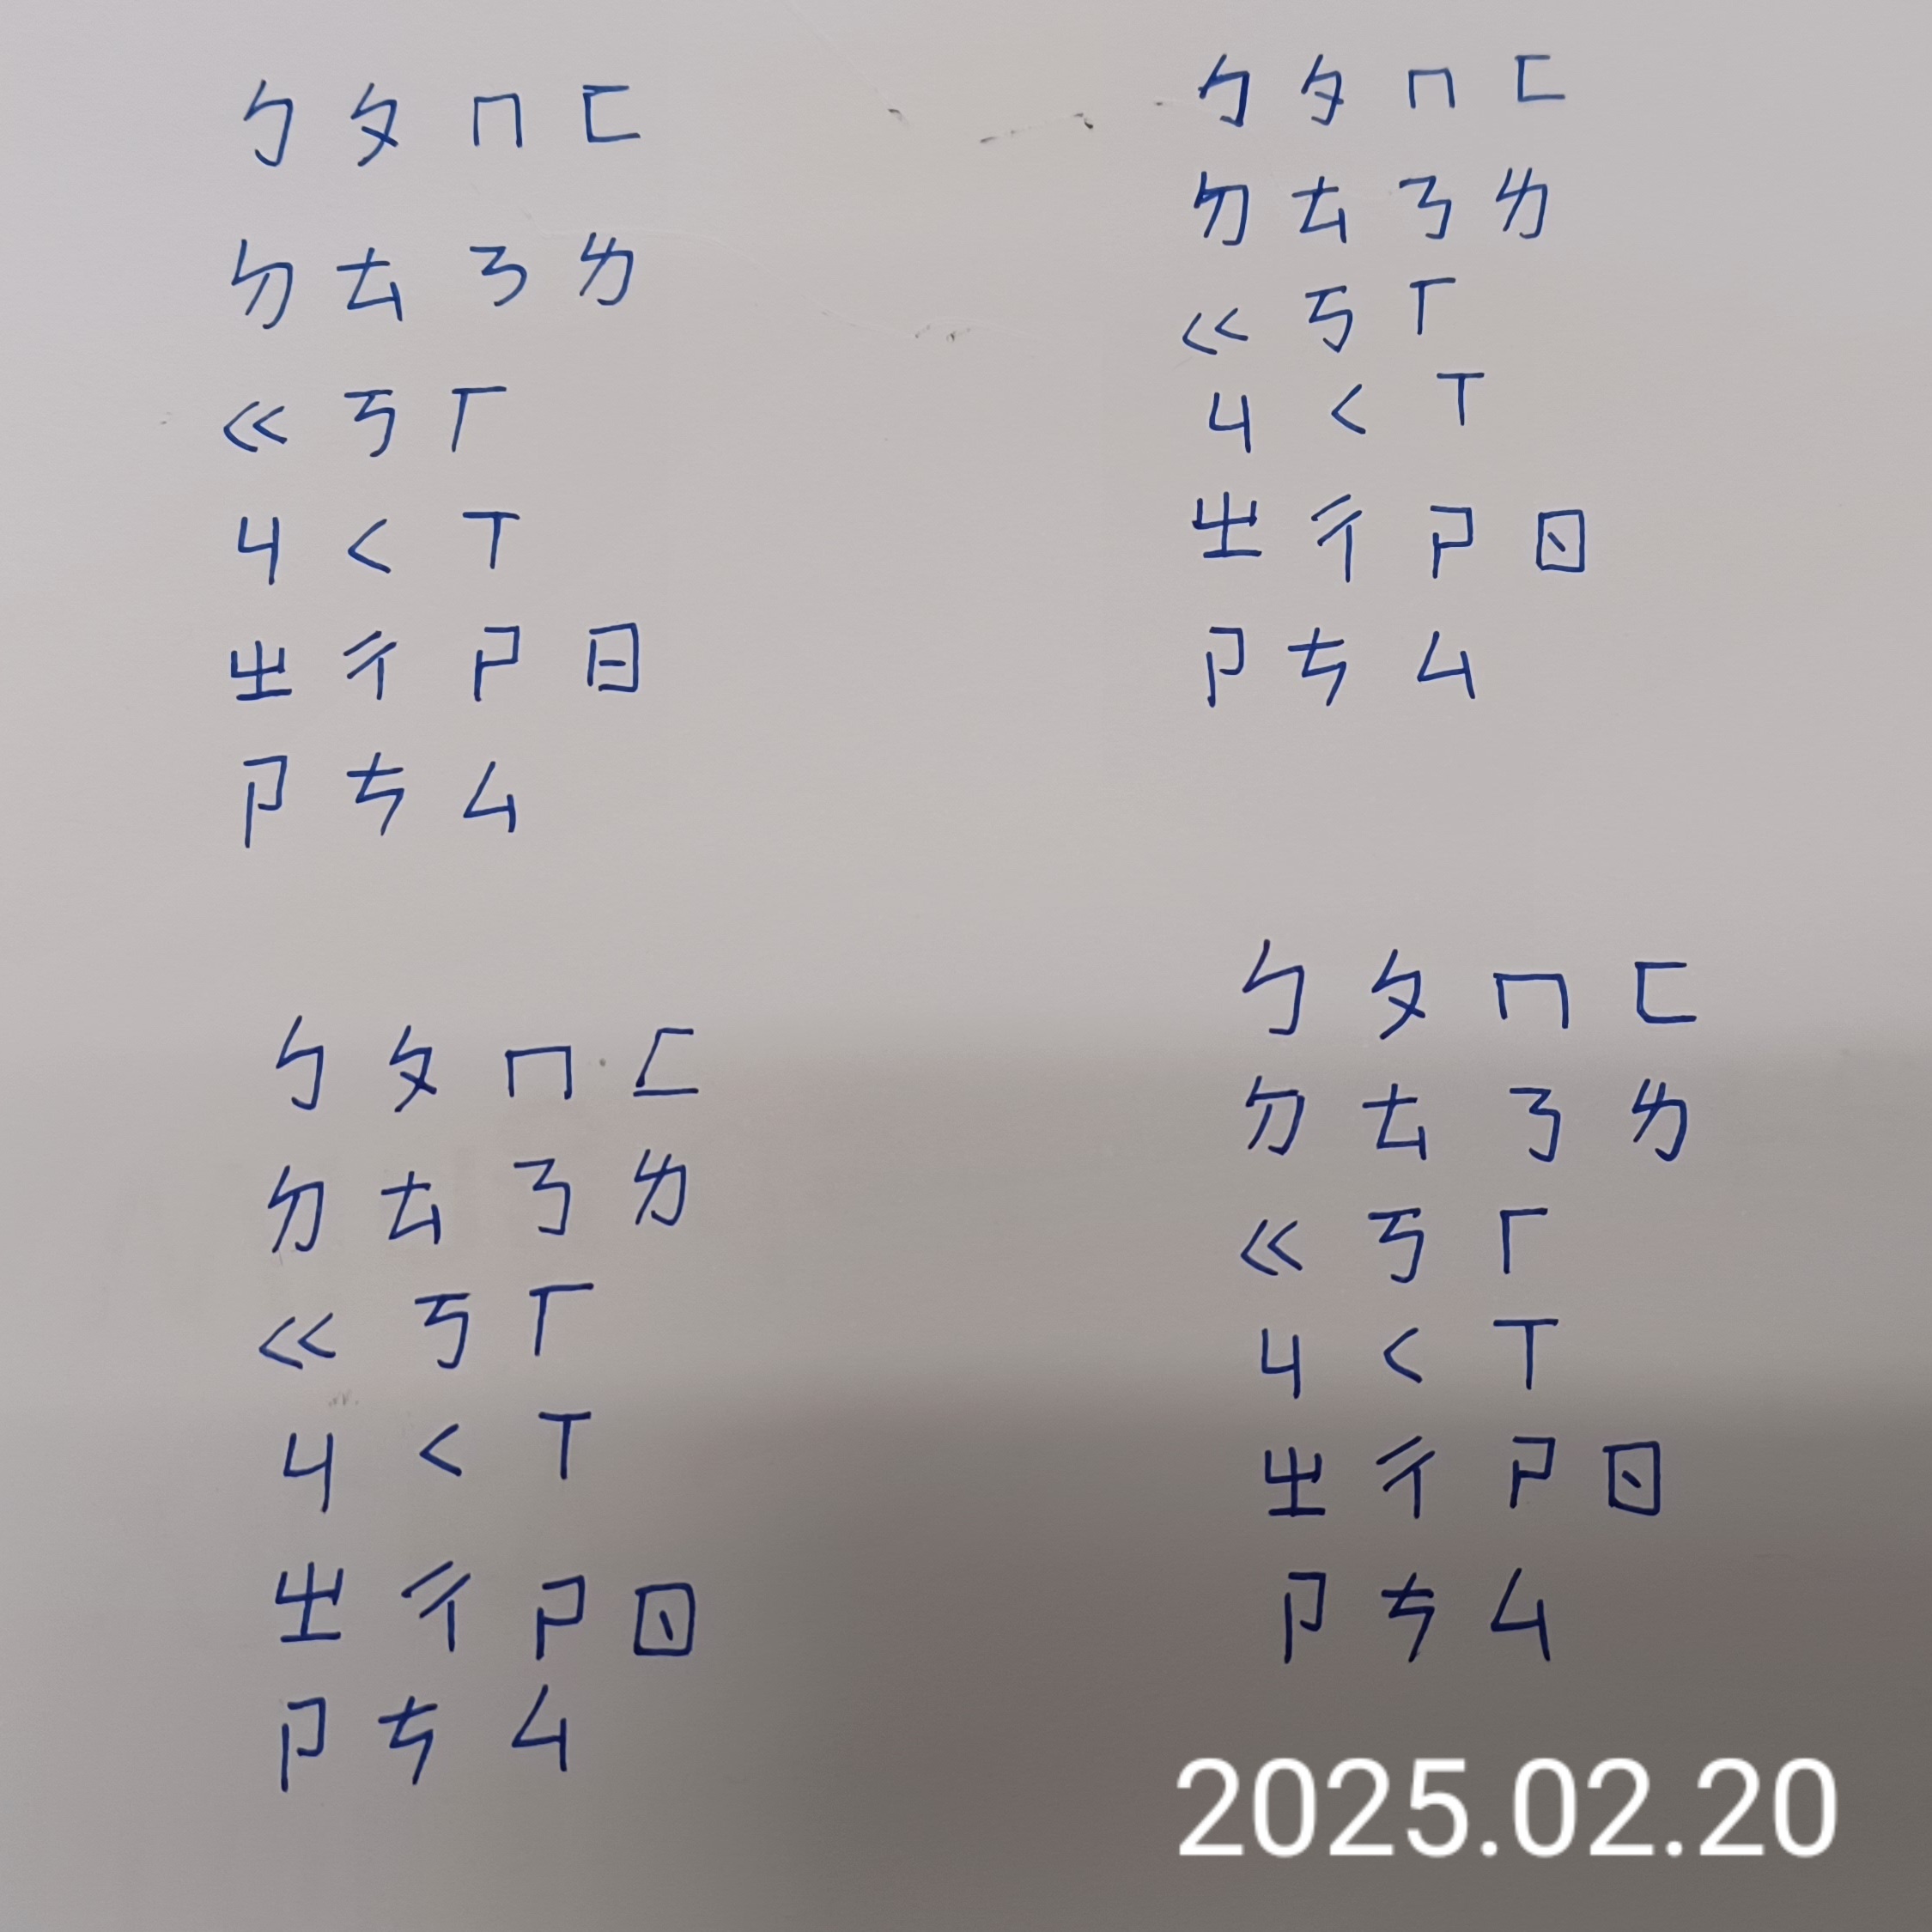 ㄅ ㄆ ㄇ ㄈ
ㄉ ㄊ ㄋ ㄌ
ㄍ ㄎ ㄏ
ㄐ ㄑ ㄒ
ㄓ ㄔ ㄕ 日
ㄗ ㄘ ㄙ
ㄅ ㄆ ㄇ ㄈ
ㄉ ㄊ ㄋ ㄌ
ㄍ ㄎ ㄏ
ㄐ ㄑ ㄒ
ㄓ ㄔ ㄕ ㄖ
ㄗ ㄘ ㄙ
ㄅ ㄆ ㄇ ㄈ
ㄉ ㄊ ㄋ ㄌ
ㄍ ㄎ ㄏ
ㄐ ㄑ ㄒ
ㄓ ㄔ ㄕ ㄖ
ㄗ ㄘ ㄙ
ㄅ ㄆ ㄇ ㄈ
ㄉ ㄊ ㄋ ㄌ
ㄍ ㄎ ㄏ
ㄐ ㄑ ㄒ
ㄓ ㄔ ㄕ ㄖ
ㄗ ㄘ ㄙ
2025.02.20